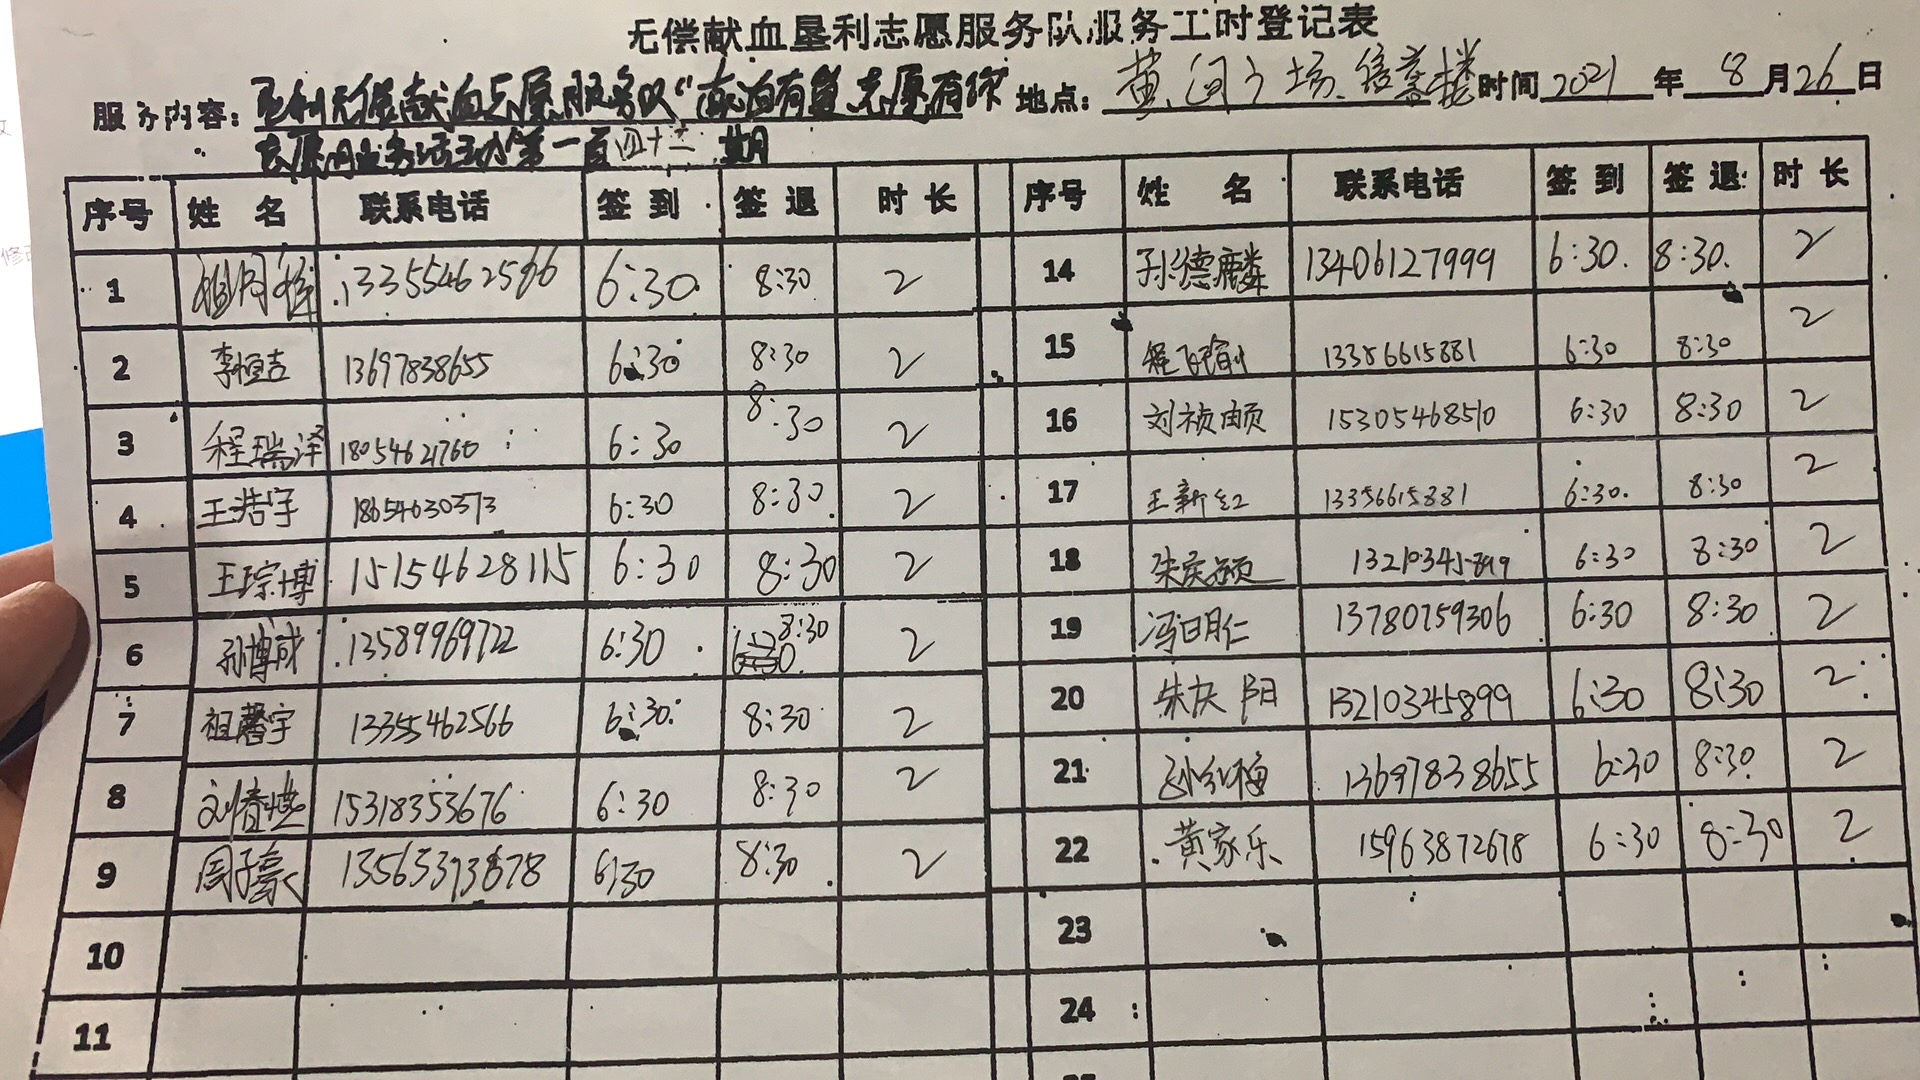 无偿献血垦利志愿服务队服务工时登记表
服务内容：垦利无偿献血志愿服务队“献血有益 志愿有你 地点：黄河广场 时间 2021 年 8 月 26 日
志愿服务活动第一百四十二期
序号 姓 名 联系电话 签 到 签 退 时 长 序号 姓 名 联系电话 签 到 签 退 时 长
1 13355462566 6:30 8:30 2 14 孙德麟 13406127999 6:30 8:30 2
2 李恒吉 13697838655 6:30 8:30 2 15 13356615881 6:30 8:30 2
3 程瑞泽 18054621760 6:30 8:30 2 16 15305468510 6:30 8:30 2
4 王浩宇 18654630373 6:30 8:30 2 17 王新红 13356615881 6:30 8:30 2
5 王琮博 15154628115 6:30 8:30 2 18 6:30 8:30 2
6 孙博成 13589969722 6:30 8:30 2 19 冯明仁 13780759306 6:30 8:30 2
7 祖馨宇 13355462566 6:30 8:30 2 20 13210345899 6:30 8:30 2
8 刘春燕 15318353676 6:30 8:30 2 21 孙红梅 13697838655 6:30 8:30 2
9 周子豪 6:30 8:30 2 22 黄家乐 15963872678 6:30 8:30 2
10 23
11 24